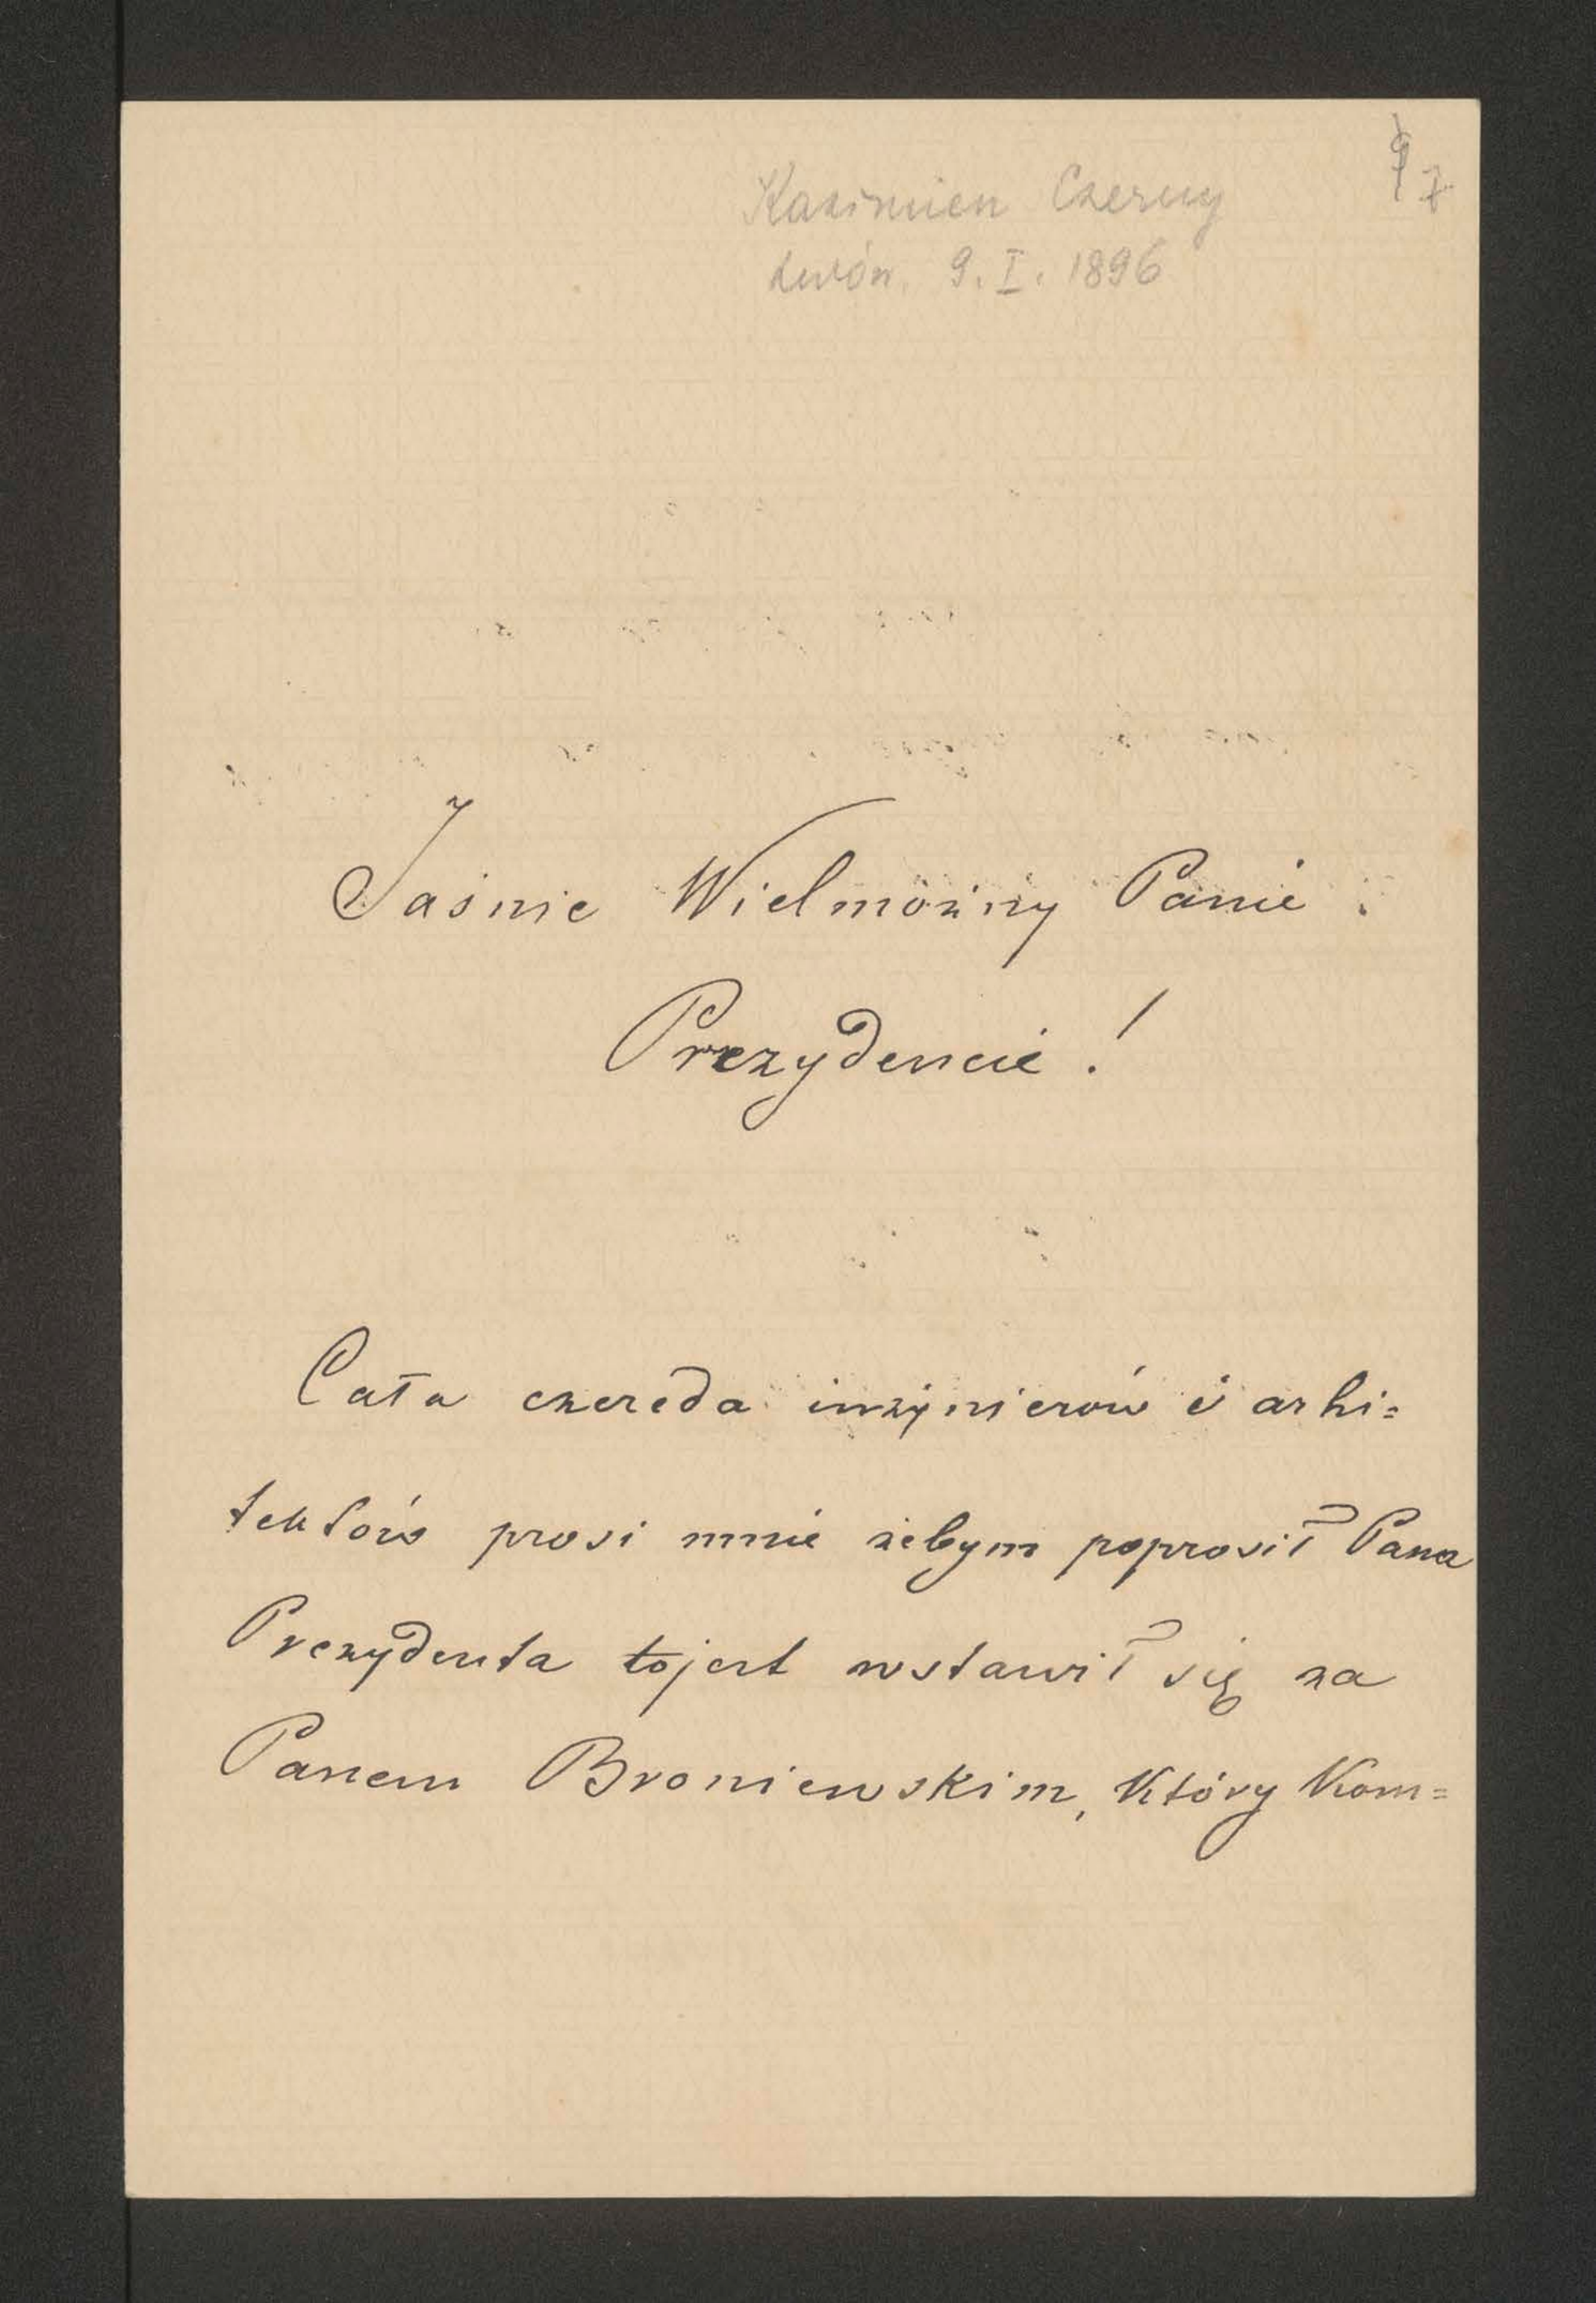 7
Kazimierz Czerny
Lwów. 9. I. 1896
Jaśnie Wielmożny Panie
Prezydencie!
Cała czereda inżynierów i arhi=
tektów prosi mnie żebym poprosił Pana
Prezydenta to jest wstawił się za
Panem Broniewskim, który kom=